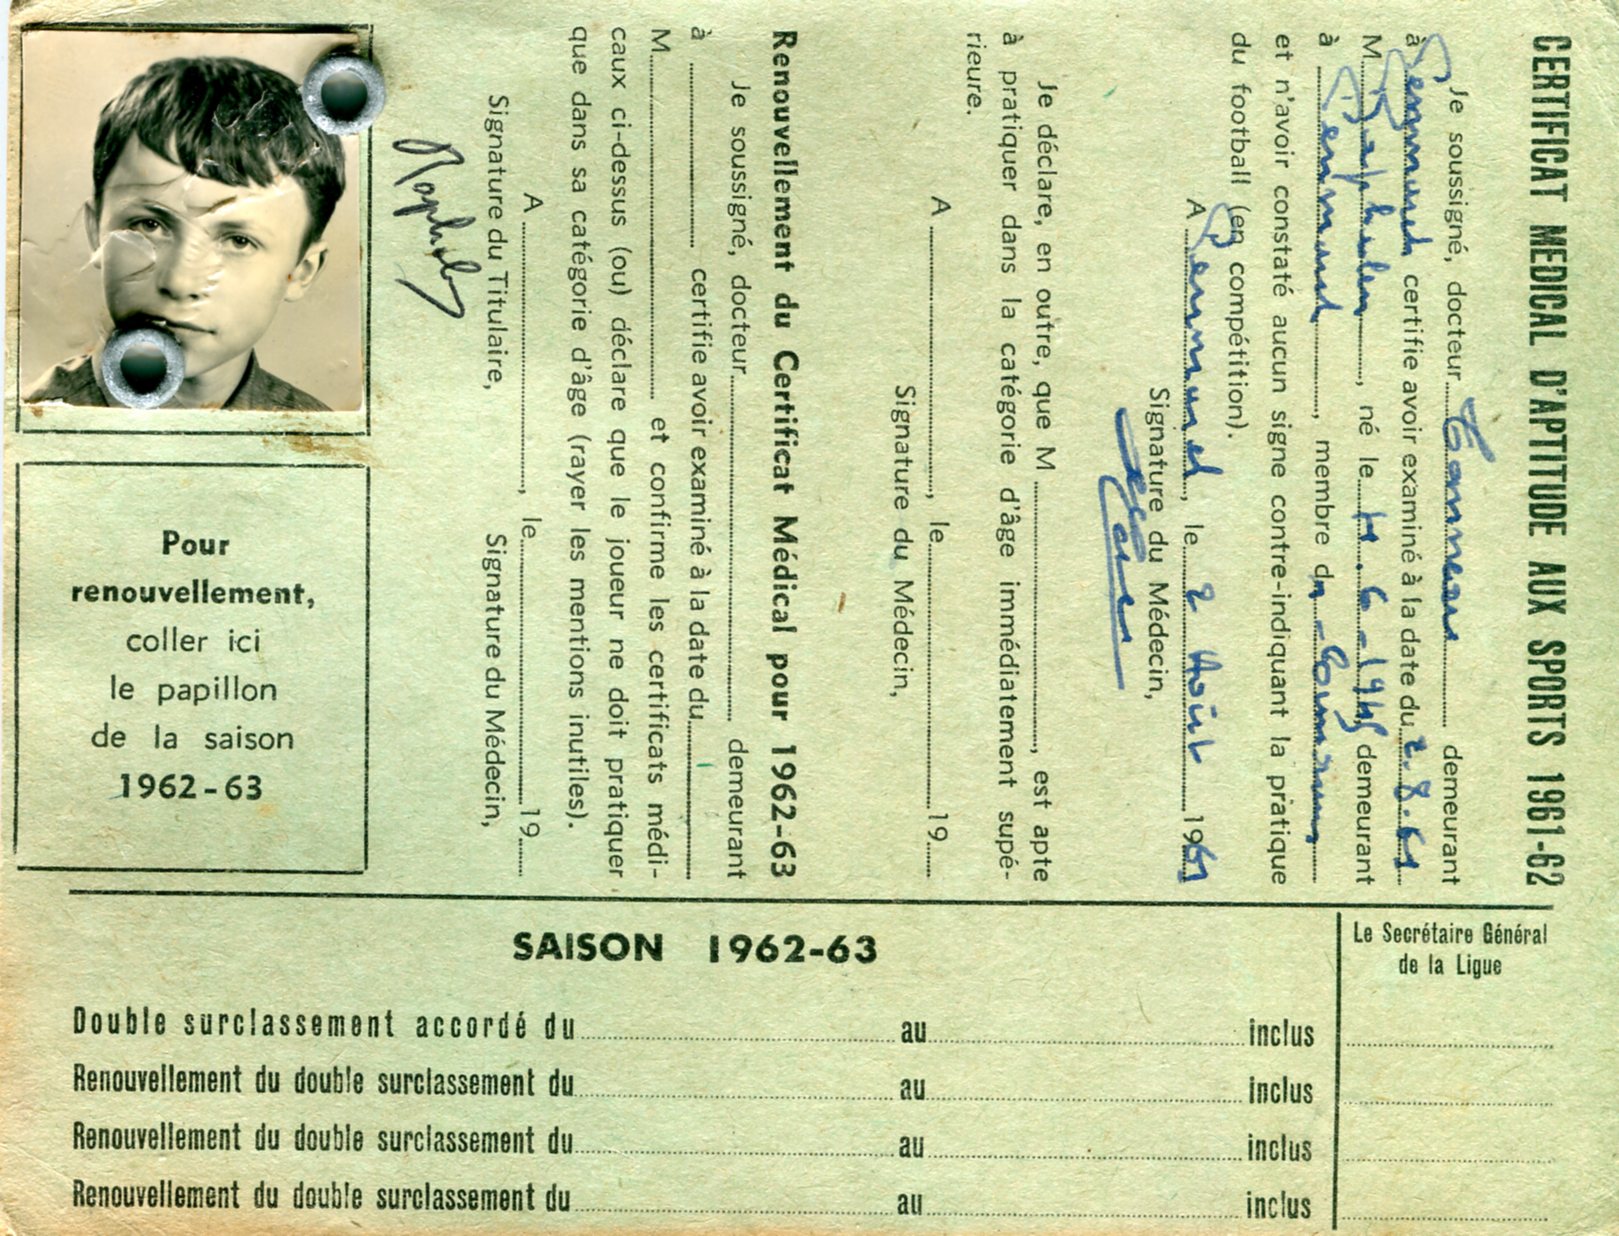 CERTIFICAT MEDICAL D'APTITUDE AUX SPORTS 1961-62
Je soussigné, docteur demeurant
à certifie avoir examiné à la date du 2.8.61
M. né le 6-1945 demeurant
à, membre
et n'avoir constaté aucun signe contre-indiquant la pratique
du football (en compétition).
A, le 2 Août 1961
Signature du Médecin,
Je déclare, en outre, que M, est apte
à pratiquer dans la catégorie d'âge immédiatement supé-
rieure.
A, le 19
Signature du Médecin,
Renouvellement du Certificat Médical pour 1962-63
Je soussigné, docteur demeurant
à certifie avoir examiné à la date du
M. et confirme les certificats médi-
caux ci-dessus (ou) déclare que le joueur ne doit pratiquer
que dans sa catégorie d'âge (rayer les mentions inutiles).
A, le 19
Signature du Titulaire, Signature du Médecin,
Pour
renouvellement,
coller ici
le papillon
de la saison
1962-63
SAISON 1962-63
Le Secrétaire Général
de la Ligue
Double surclassement accordé du au inclus
Renouvellement du double surclassement du au inclus
Renouvellement du double surclassement du au inclus
Renouvellement du double surclassement du au inclus